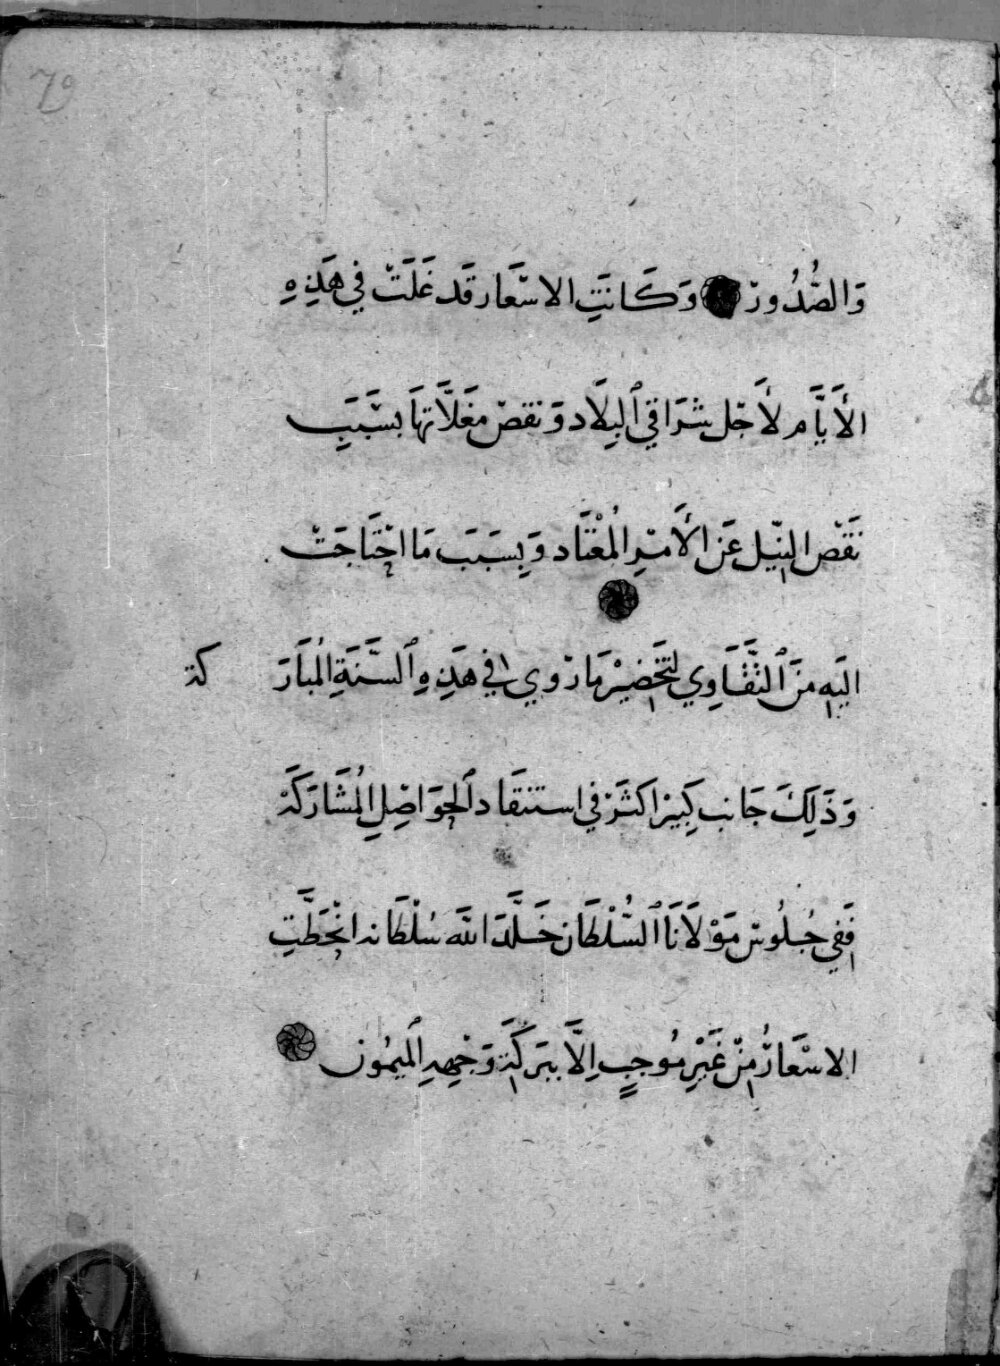 79
وَالصُّدُورْ وَكَانَتِ الاسْعَار قَد غَلَتْ فِي هَذِهِ
الأَيَّام لأَجْل شَرَاقِي ٱلبِلَاد وَنَقصْ مغَلَّاتهَا بسَّبَبِ
نَقْص النِيْل عَن الأَمْرِ المُعْتَاد وَبِسَبَبَ مَا احْتَاجَتْ
اليَهِ منَ ٱلتَّقَاوِي لتَحْضِيْر مَا رْوِي فِي هَذِهِ ٱلسَّنَةِ المُبَارَكة
وَذَلِكَ جَانب كَبِيْر اكثَرْ فِي استنقَاد ٱلحوَاصْلِ المُشَارَكَة
فَفِي جُلُوسْ مَوْلَانَا ٱلسُّلْطَان خَلَّدَ اللَّه سُلْطَانه انْحَطَّتِ
الاسْعَارُ مِنْ غَيْرِ مُوجبٍ اِلَّا ببَرَكَة وَجْهِهِ ٱلميمُون